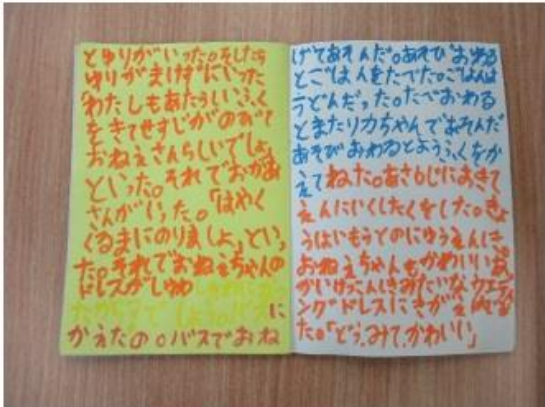 とゆりがいった。そしたら
ゆりがまけずにいった
「わたしもあたらしいふく
をきてせすじがのびて
おねえさんらしいでしょ」
といった。それでおかあ
さんがいった。「はやく
くるまにのりましょ」とい
った。それでおねえちゃんの
ドレスがしゅわ
に
かえたの。バスでおね
げてあそんだ。あそびおわる
とごはんをたべた。ごはんは
うどんだった。たべおわる
とまたリカちゃんであそんだ
あそびおわるとようふくをか
えてねた。あさ6じにおきて
えんにいくしたくをした。きょ
うはいもうとのにゅうえんに
おねえちゃんもかわいいあ
かいけっこんしきみたいなウエディ
ングドレスにきがえ
た。「どう、みて、かわいい」